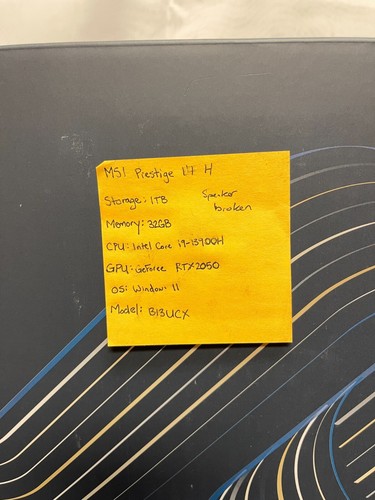 MSI Prestige 17 H
Storage: 1TB
Speaker
broken
Memory: 32GB
CPU: Intel Core i9-13900H
GPU: GeForce RTX2050
OS: Window 11
Model: B13UCX